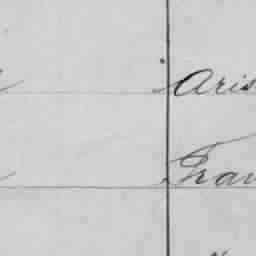 Aris
Fran